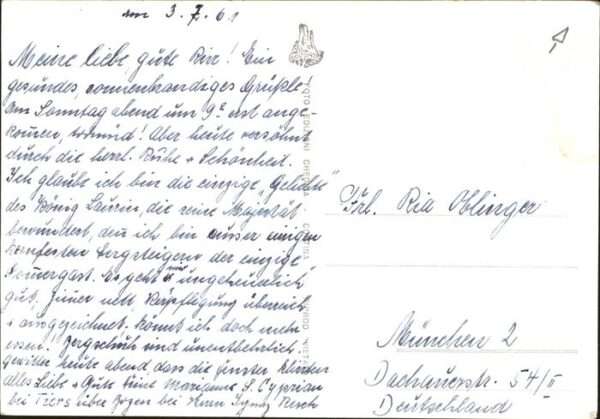 am 3.7.61
Meine liebe, gute Rin! Ein
gesundes, sonnenbrandiges Grüßle
Am Sonntag abend um 9h erst ange-
kommen, todmüd! Aber heute versöhnt
durch die herrl. Ruhe + Schönheit.
Ich glaube ich bin die einzige „Geliebte"
des König Laurin, die seine Majestät
bewundert, denn ich bin ausser einigen
Bergsteigern der einzige
Sommergast. Es geht mir ungeheuerlich
gut, Zimmer nett, Verpflegung überreich
+ ausgezeichnet, könnt ich doch mehr
essen! Bergschuh sind unentbehrlich.
gewitter heute abend, dass die finster
alles Liebe + Gute Deine Marianne S. Cyprian
bei Tiers über Bozen bei Resch
Frl. Ria Oblinger
München 2
Dachauerstr. 54/II
Deutschland